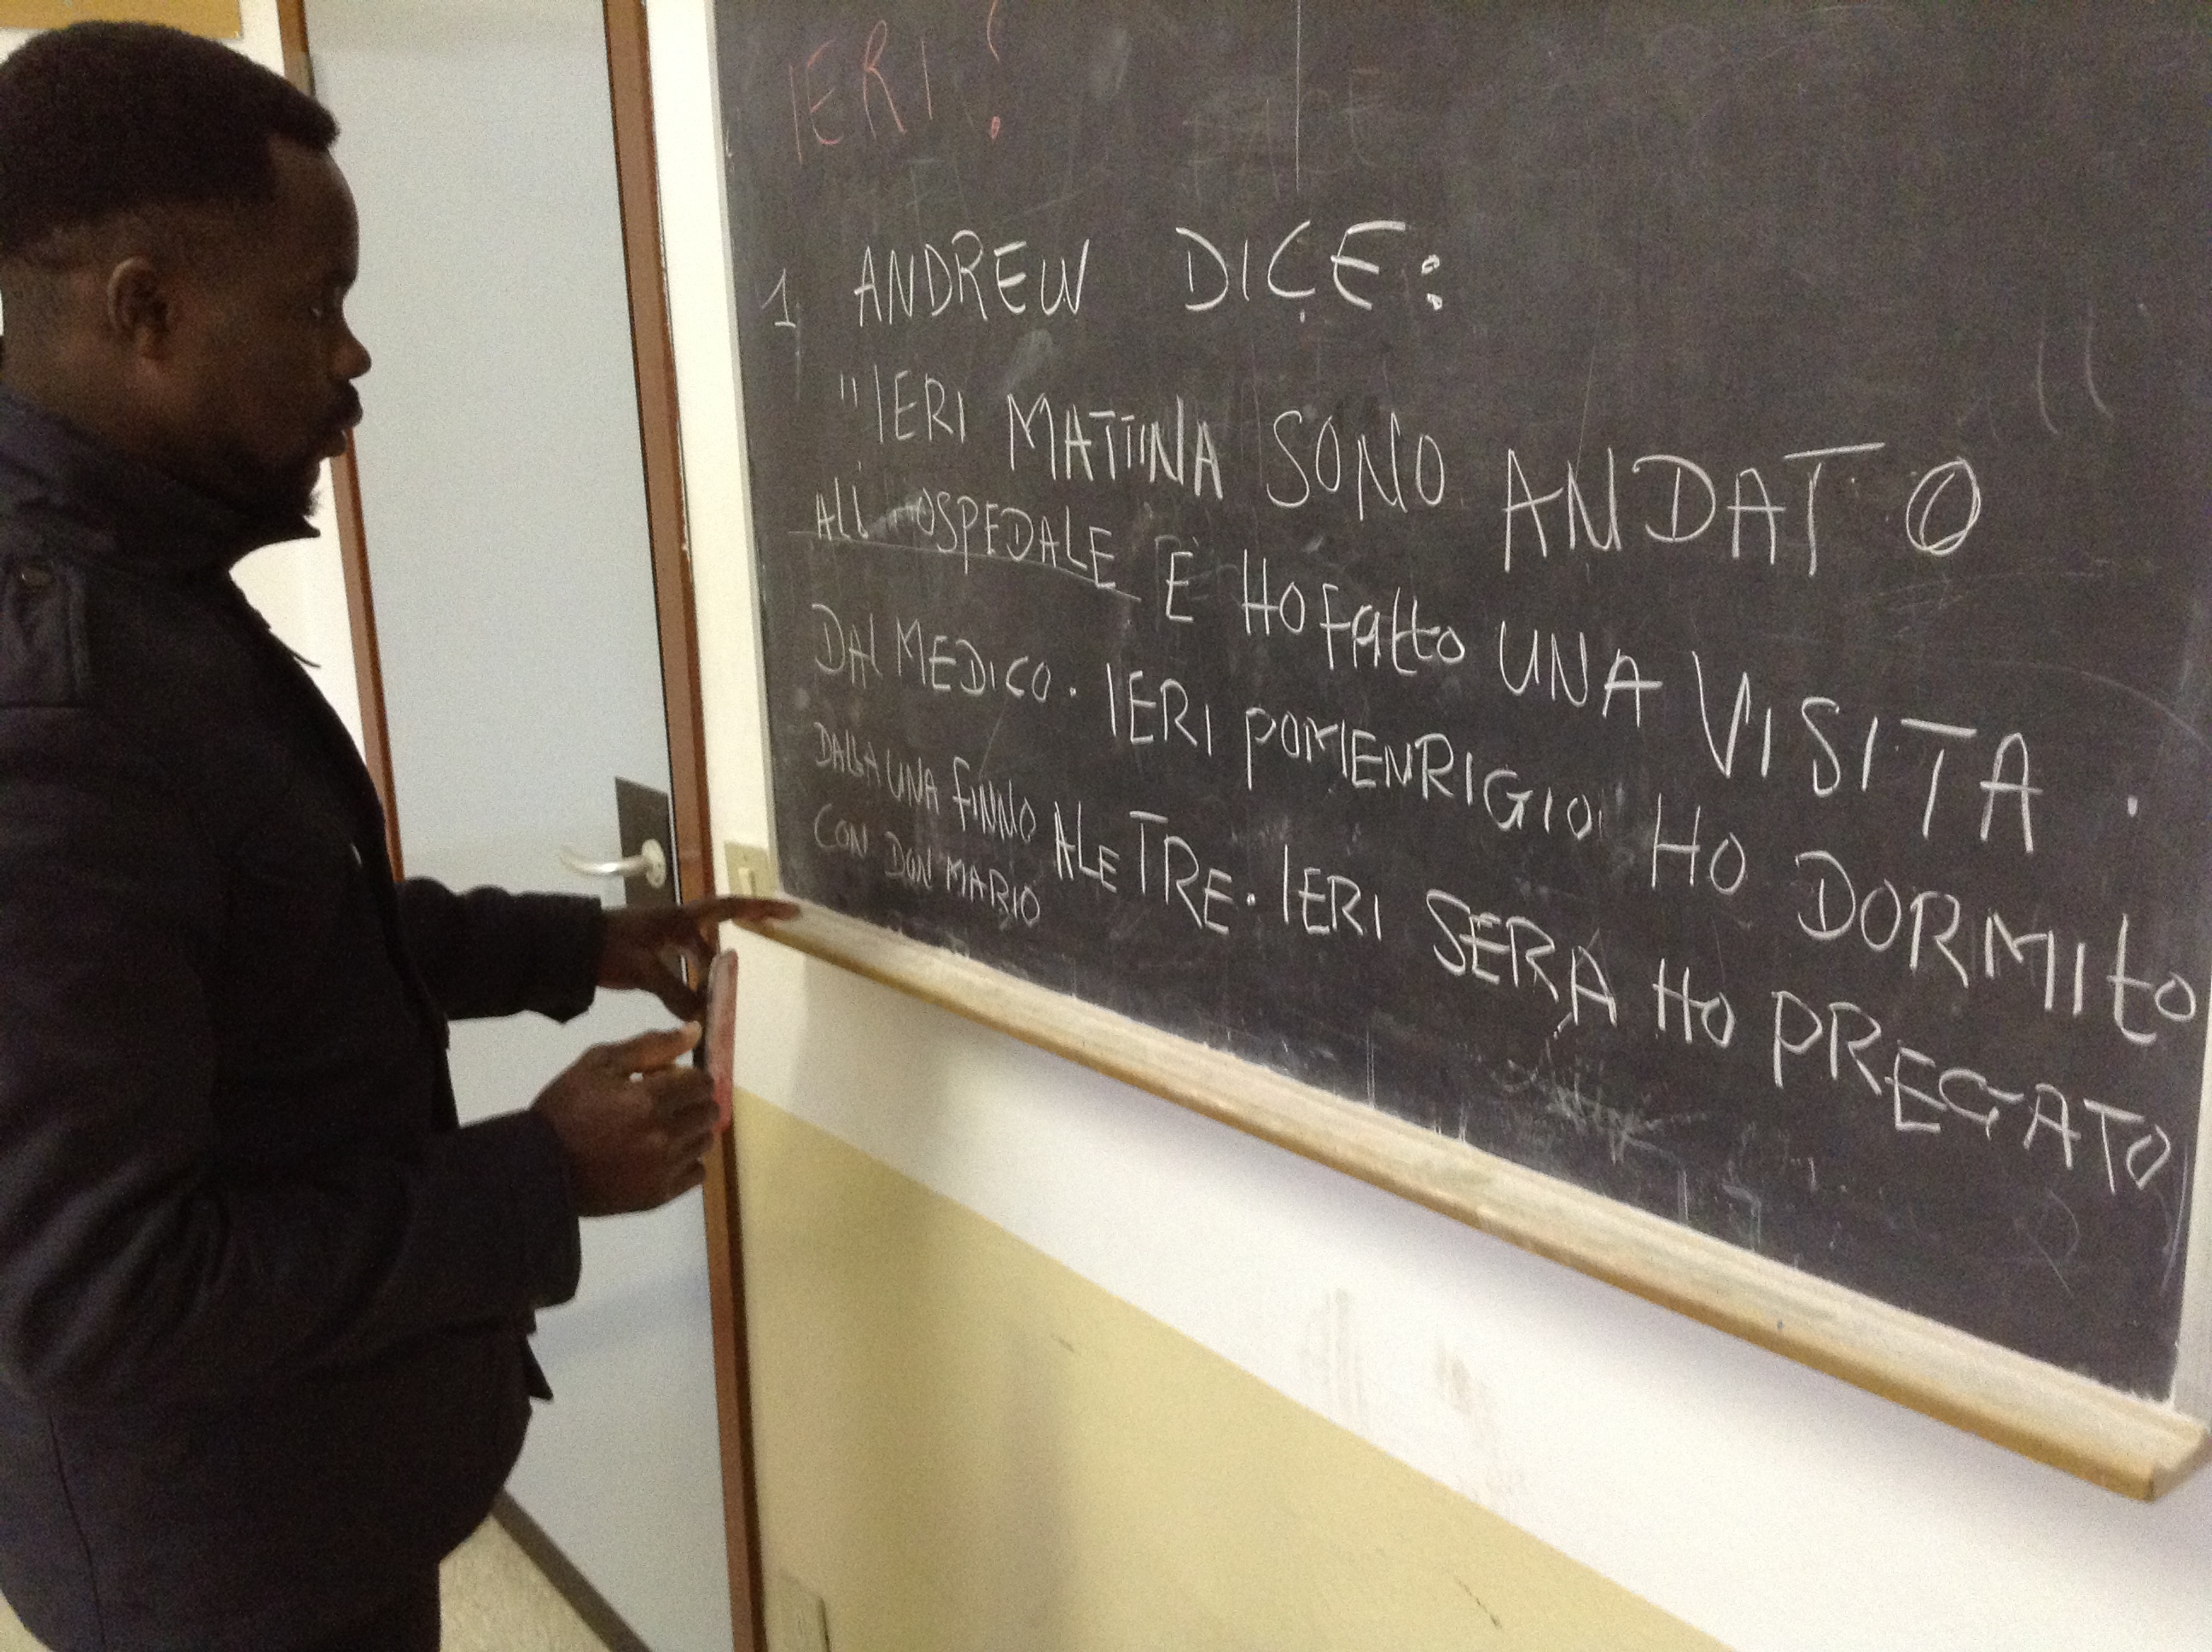 IERI?
1 ANDREW DICE:
"IERI MATTINA SONO ANDATO
ALL'HOSPEDALE E HO FATTO UNA VISITA.
DAL MEDICO. IERI POMENRIGIO HO DORMITO
DALLA UNA FINNO ALE TRE. IERI SERA HO PREGATO
CON DON MARIO